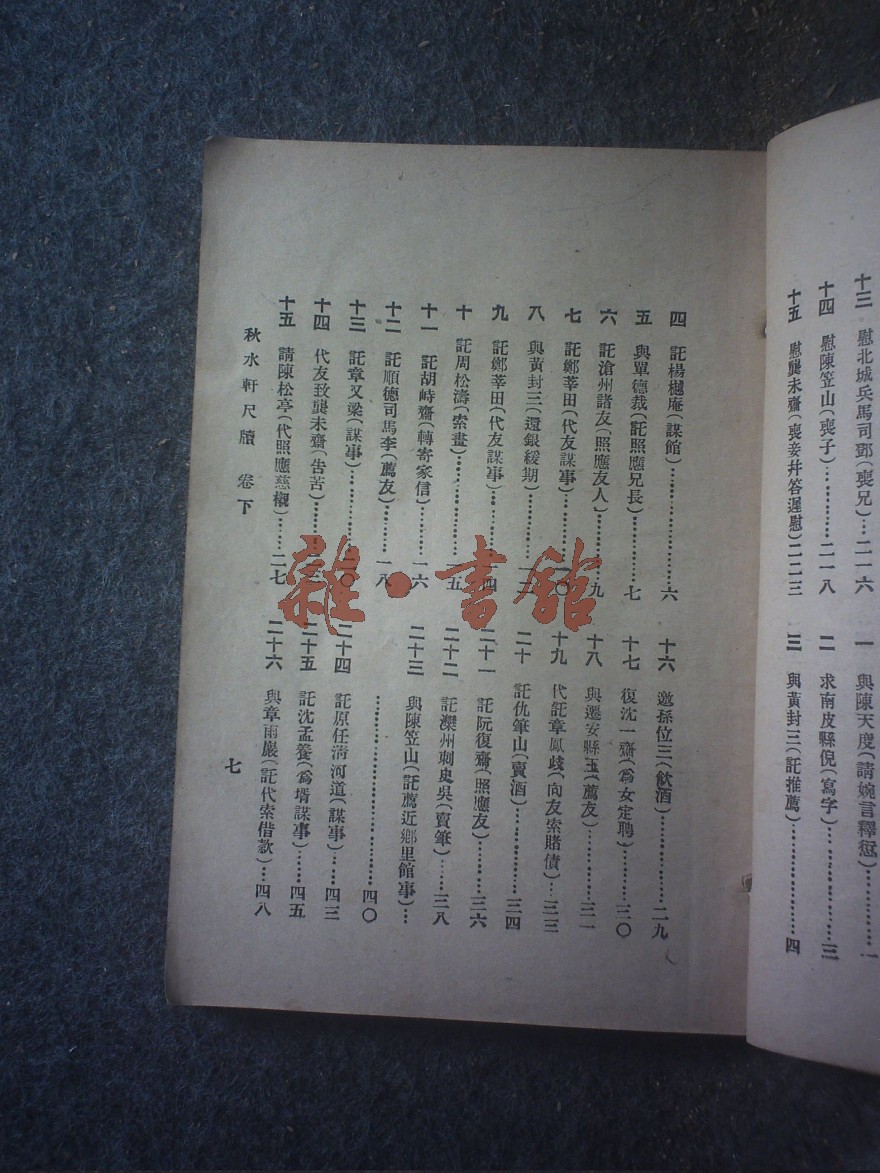 十三　慰北城兵馬司鄧(喪兄)…二一六
十四　慰陳笠山(喪子)………二一八
十五　慰龔未齋(喪妾幷答遲慰)二二三
一　與陳天度(請婉言釋愆)………一
二　求南皮縣倪(寫字)………三
三　與黃封三(託推薦)………四
四　託楊樾庵(謀館)………六
五　與單德裁(託照應兄長)………七
六　託滄州諸友(照應友人)………九
七　託鄭莘田(代友謀事)………一〇
八　與黃封三(還銀緩期)………一二
九　託鄭莘田(代友謀事)………一四
十　託周松濤(索畫)………一五
十一　託胡峙齋(轉寄家信)………一六
十二　託順德司馬李(薦友)………一八
十三　託章又梁(謀事)………二〇
十四　代友致龔未齋(告苦)………
十五　請陳松亭(代照應慈櫬)……二七
十六　邀孫位三(飲酒)………二九
十七　復沈一齋(爲女定聘)………三〇
十八　與遷安縣玉(薦友)………三一
十九　代託章鳳歧(向友索賭債)…三三
二十　託仇筆山(賣酒)………三四
二十一　託阮復齋(照應友)………三六
二十二　託灤州刺史吳(賣筆)……三八
二十三　與陳笠山(託薦近鄉里館事)…
………四〇
二十四　託原任淸河道(謀事)……四三
二十五　託沈孟養(爲壻謀事)……四五
二十六　與章雨巖(託代索借款)…四八
秋水軒尺牘　卷下
七
雜·書館